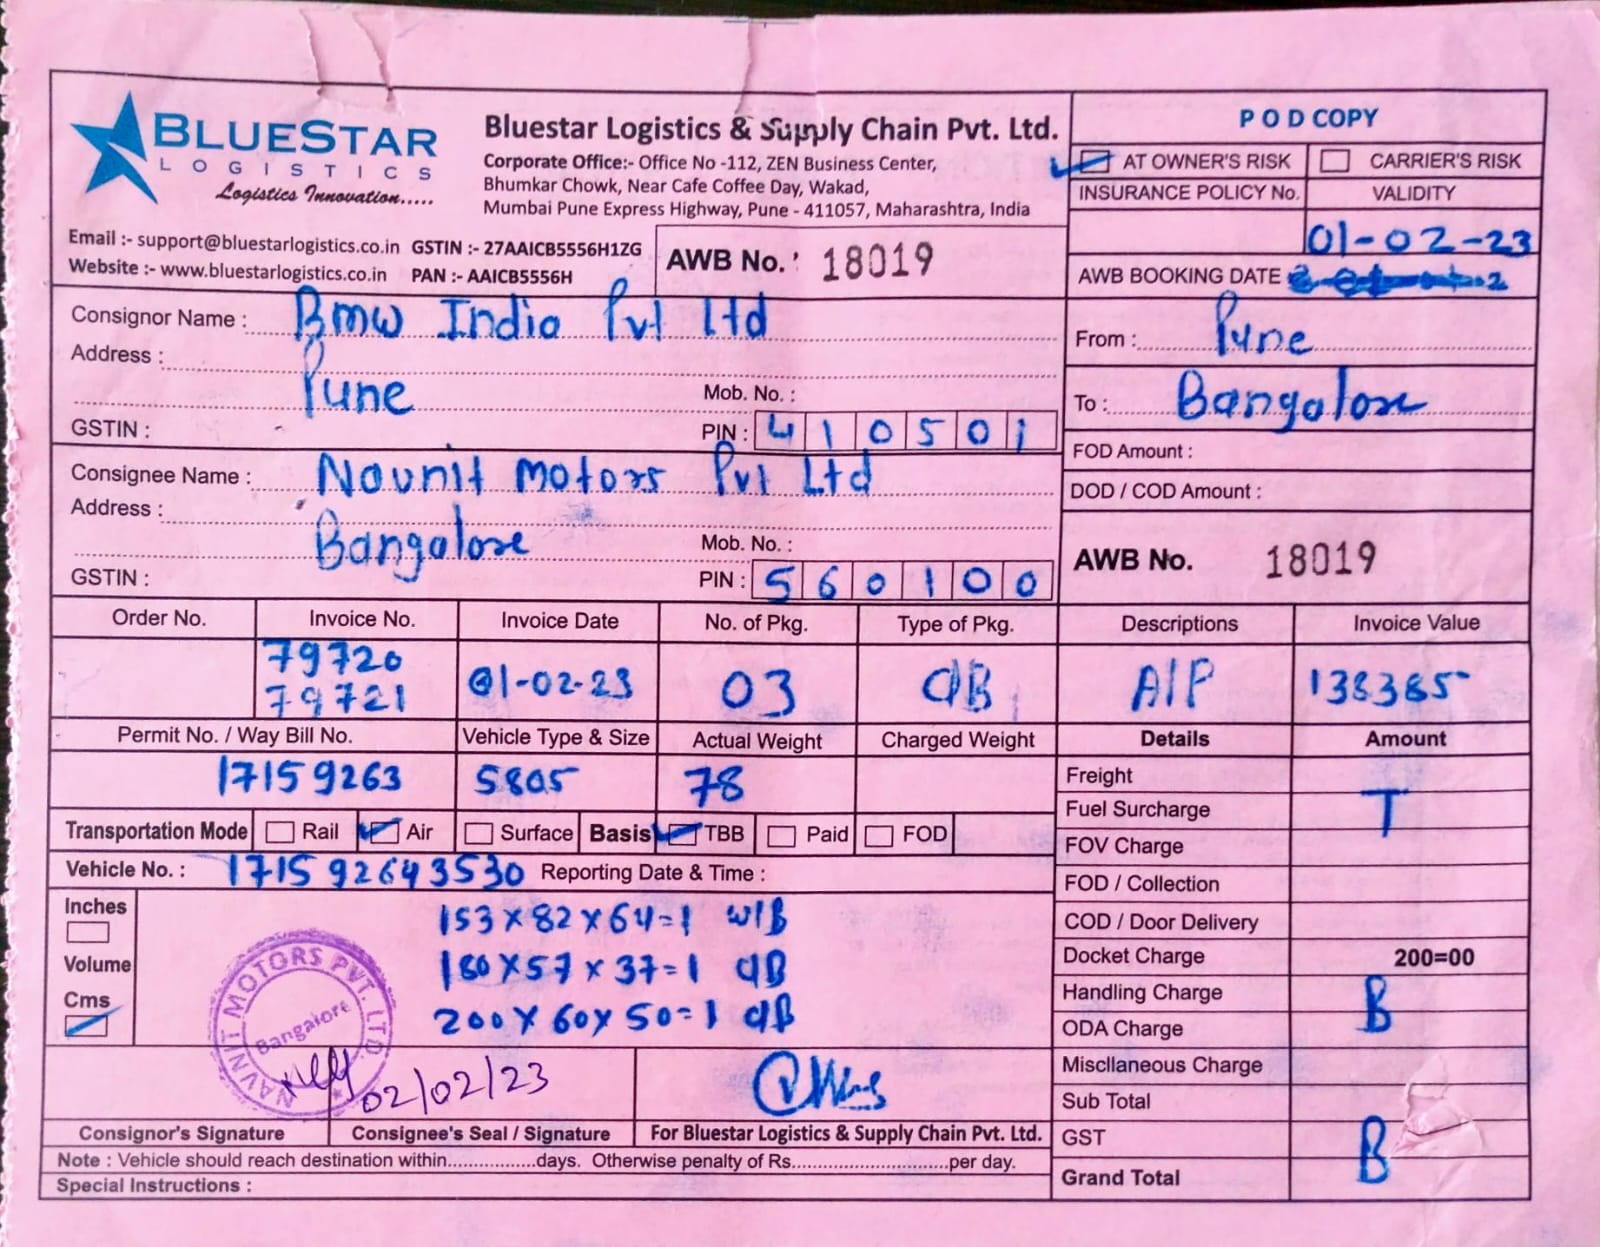 BLUESTAR
LOGISTICS
Logistics Innovation.....
Bluestar Logistics & Supply Chain Pvt. Ltd.
Corporate Office:- Office No -112, ZEN Business Center,
Bhumkar Chowk, Near Cafe Coffee Day, Wakad,
Mumbai Pune Express Highway, Pune - 411057, Maharashtra, India
Email :- support@bluestarlogistics.co.in GSTIN :- 27AAICB5556H1ZG
Website :- www.bluestarlogistics.co.in PAN :- AAICB5556H
AWB No. 18019
POD COPY
AT OWNER'S RISK CARRIER'S RISK
INSURANCE POLICY No. VALIDITY
01-02-23
AWB BOOKING DATE
Consignor Name : Bmw India Pvt Ltd
Address :
Pune Mob. No. :
GSTIN : PIN : 410501
From : Pune
To : Bangalore
FOD Amount :
DOD / COD Amount :
Consignee Name : Navnit Motors Pvt Ltd
Address :
Bangalore Mob. No. :
GSTIN : PIN : 560100
AWB No. 18019
Order No. Invoice No. Invoice Date No. of Pkg. Type of Pkg. Descriptions Invoice Value
79720
79721 01-02-23 03 CIB AIP 138385
Permit No. / Way Bill No. Vehicle Type & Size Actual Weight Charged Weight Details Amount
17159263 5805 78
Freight
Fuel Surcharge T
FOV Charge
FOD / Collection
COD / Door Delivery
Docket Charge 200=00
Handling Charge B
ODA Charge
Miscllaneous Charge
Sub Total
GST B
Grand Total
Transportation Mode Rail Air Surface Basis TBB Paid FOD
Vehicle No. : 171592643530 Reporting Date & Time :
Inches
Volume
Cms
153x82x64=1 WIB
180x57x37=1 CIB
200x60x50=1 CIB
NAVNIT MOTORS PVT. LTD.
Bangalore
02/02/23
Consignor's Signature Consignee's Seal / Signature For Bluestar Logistics & Supply Chain Pvt. Ltd.
Note : Vehicle should reach destination within.................days. Otherwise penalty of Rs.............................per day.
Special Instructions :